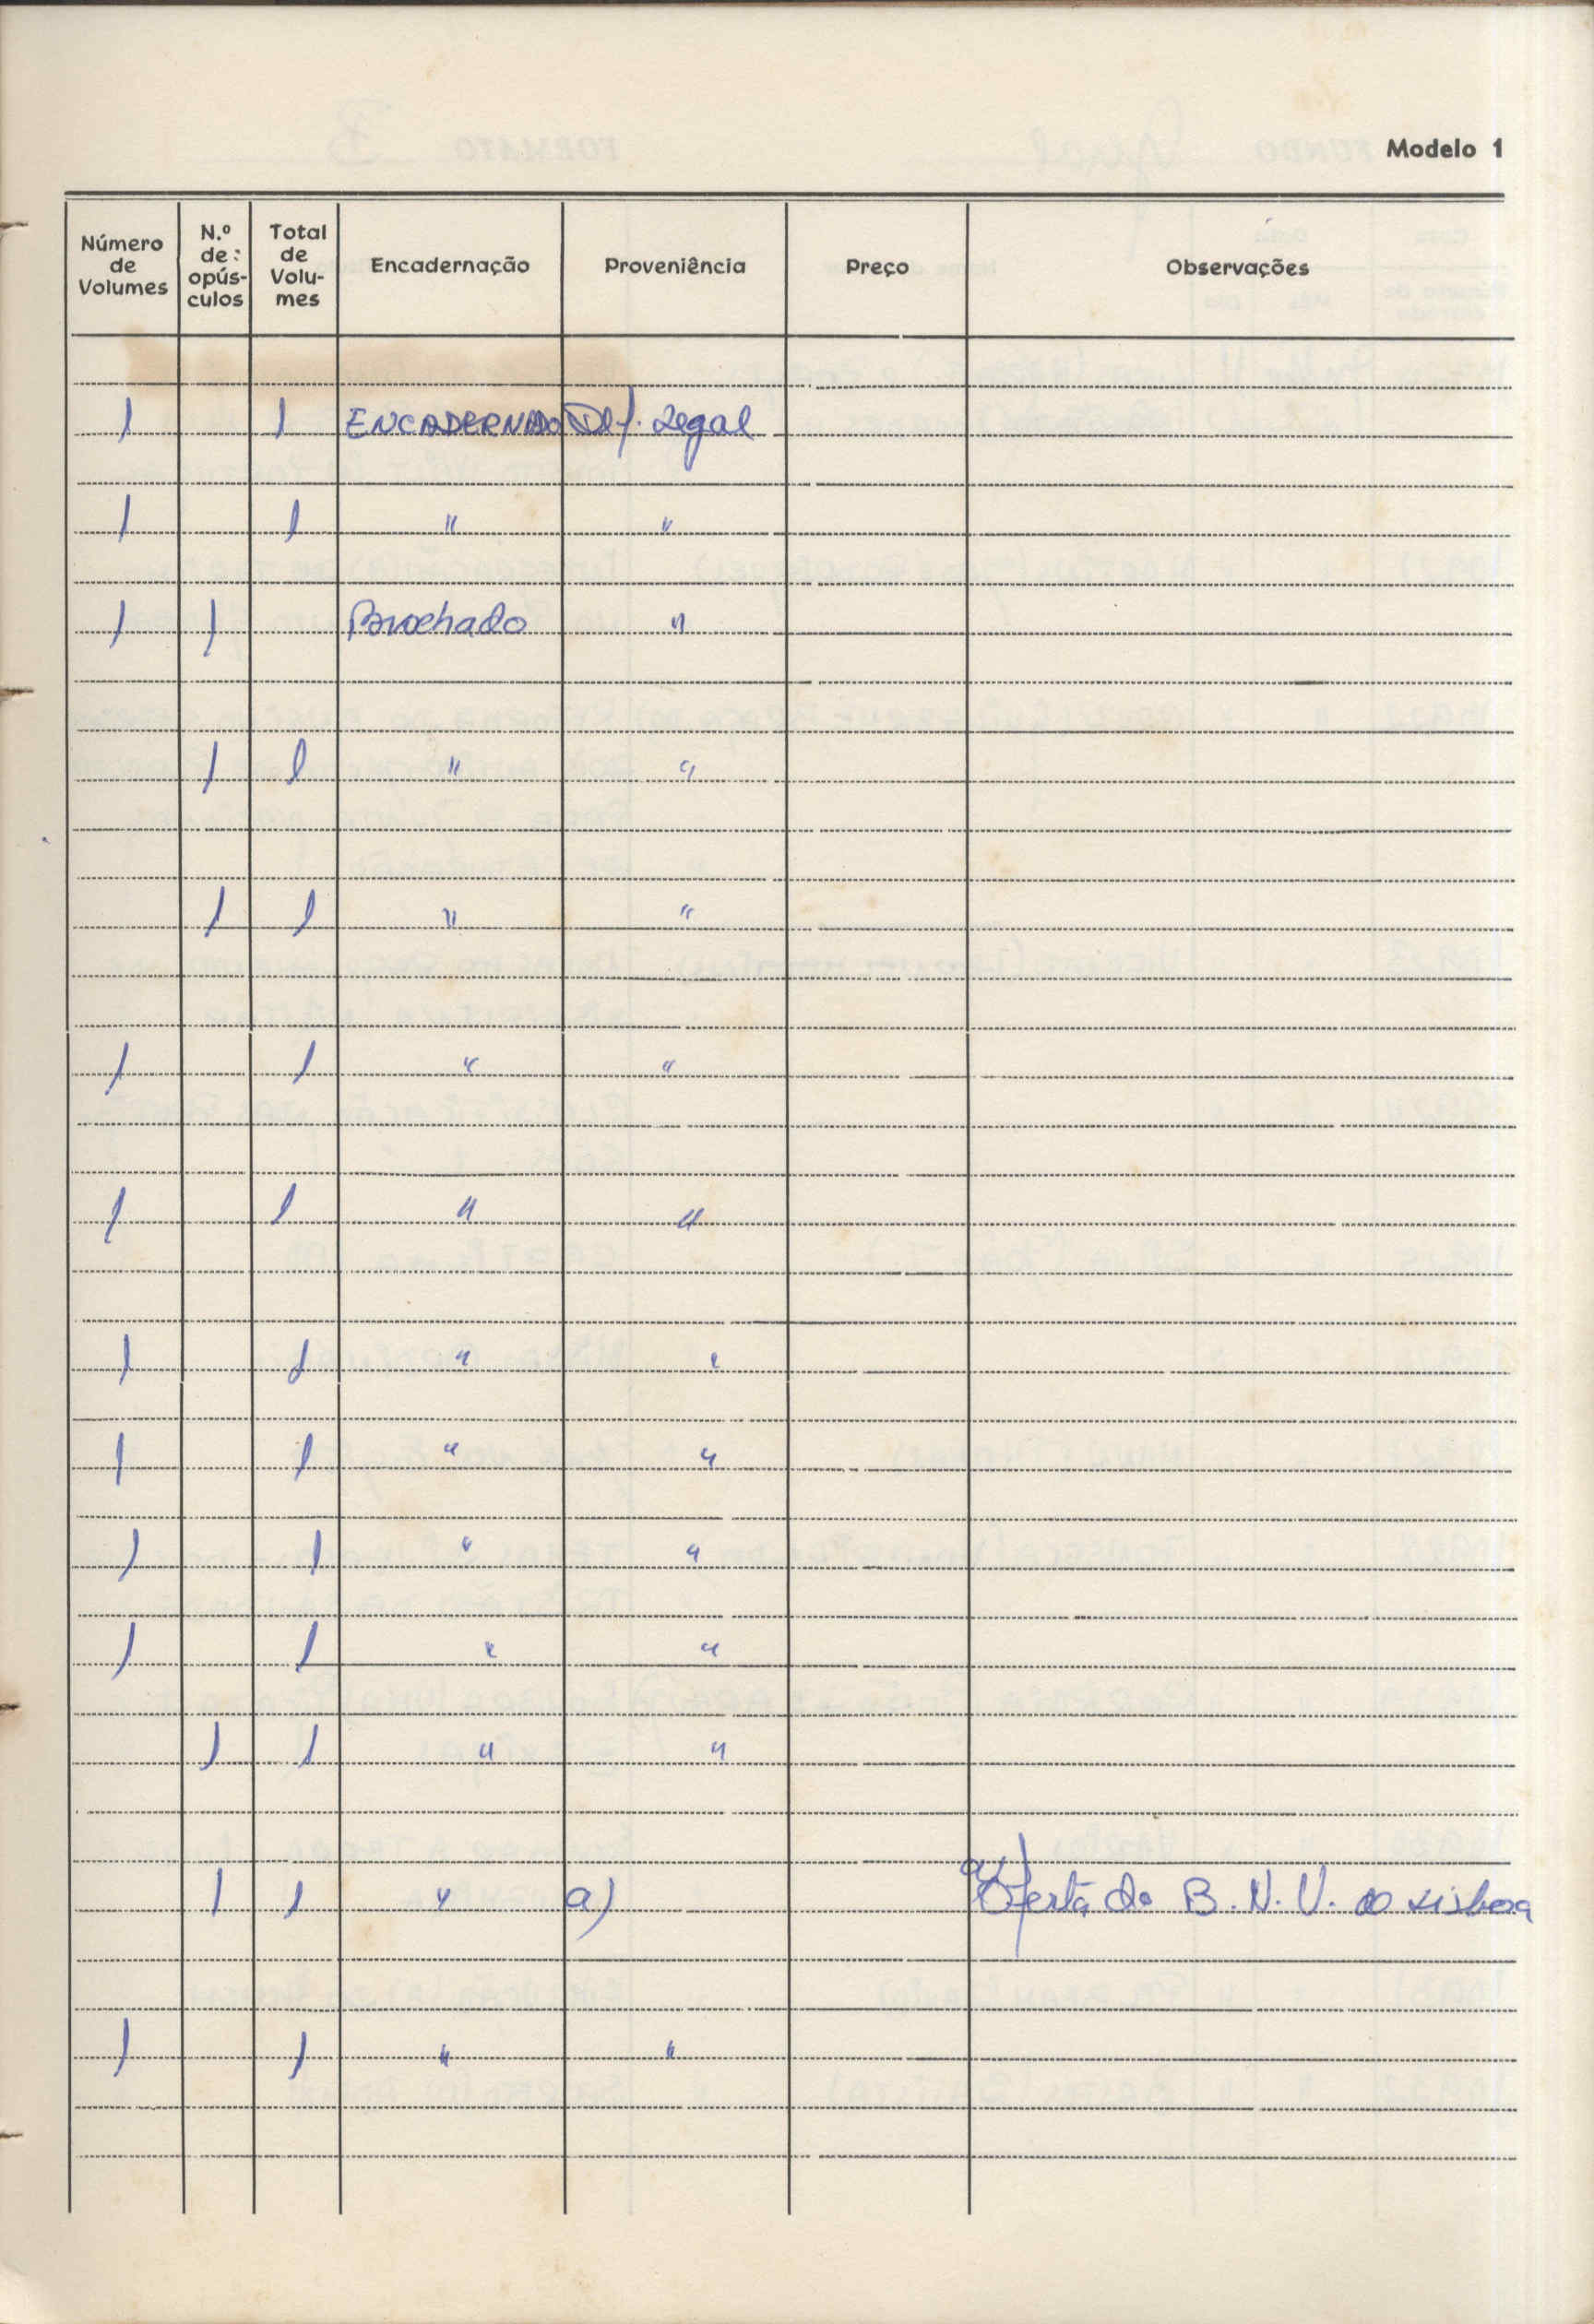 Modelo 1
Número de Volumes N.º de opús-culos Total de Volu-mes Encadernação Proveniência Preço Observações
1 1 ENCADERNADO Dep. Legal
1 1 " "
1 1 Brochado "
1 1 " "
1 1 " "
1 1 " "
1 1 " "
1 1 " "
1 1 " "
1 1 " "
1 1 " "
1 1 " "
1 1 " a) a) Oferta do B. N. U. Lisboa
1 1 " "